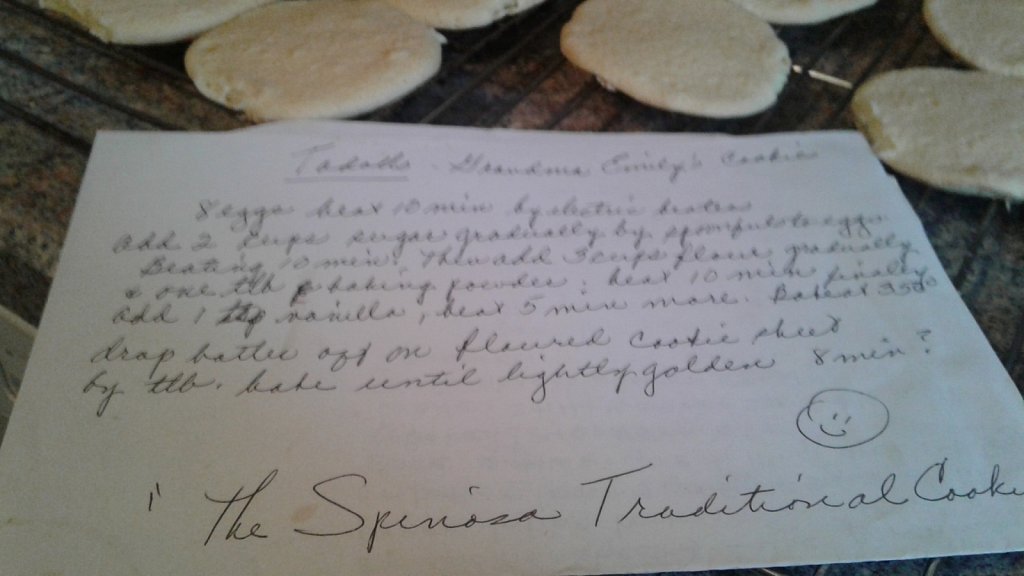 Tadalls - Grandma Emily's Cookie
8 eggs beat 10 min by electric beaters
add 2 cups sugar gradually by spoonful to eggs
Beating 10 min. Then add 3 cups flour gradually
& one tlb baking powder; beat 10 min finally
add 1 tsp vanilla, beat 5 min more. Bake at 350°
drop batter off on floured cookie sheet
by tlb. bake until lightly golden 8 min?
The Spinosa Traditional Cookie